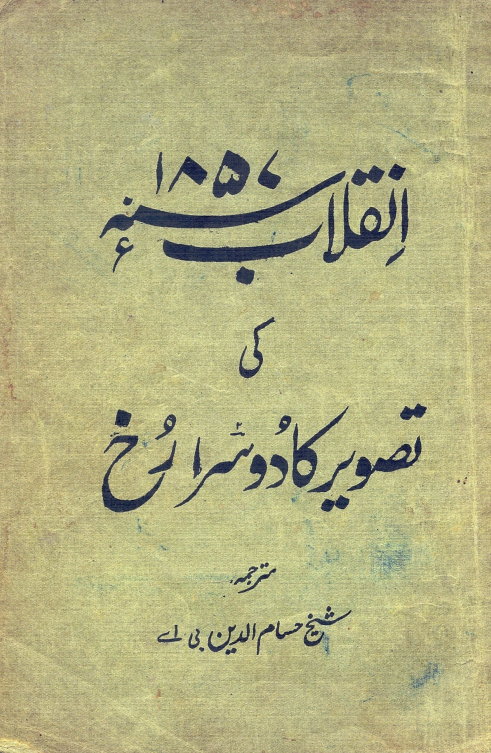 انقلاب سنہ ۱۸۵۷ء
کی
تصویر کا دُوسرا رُخ
مترجمہ
شیخ حسام الدین بی اے